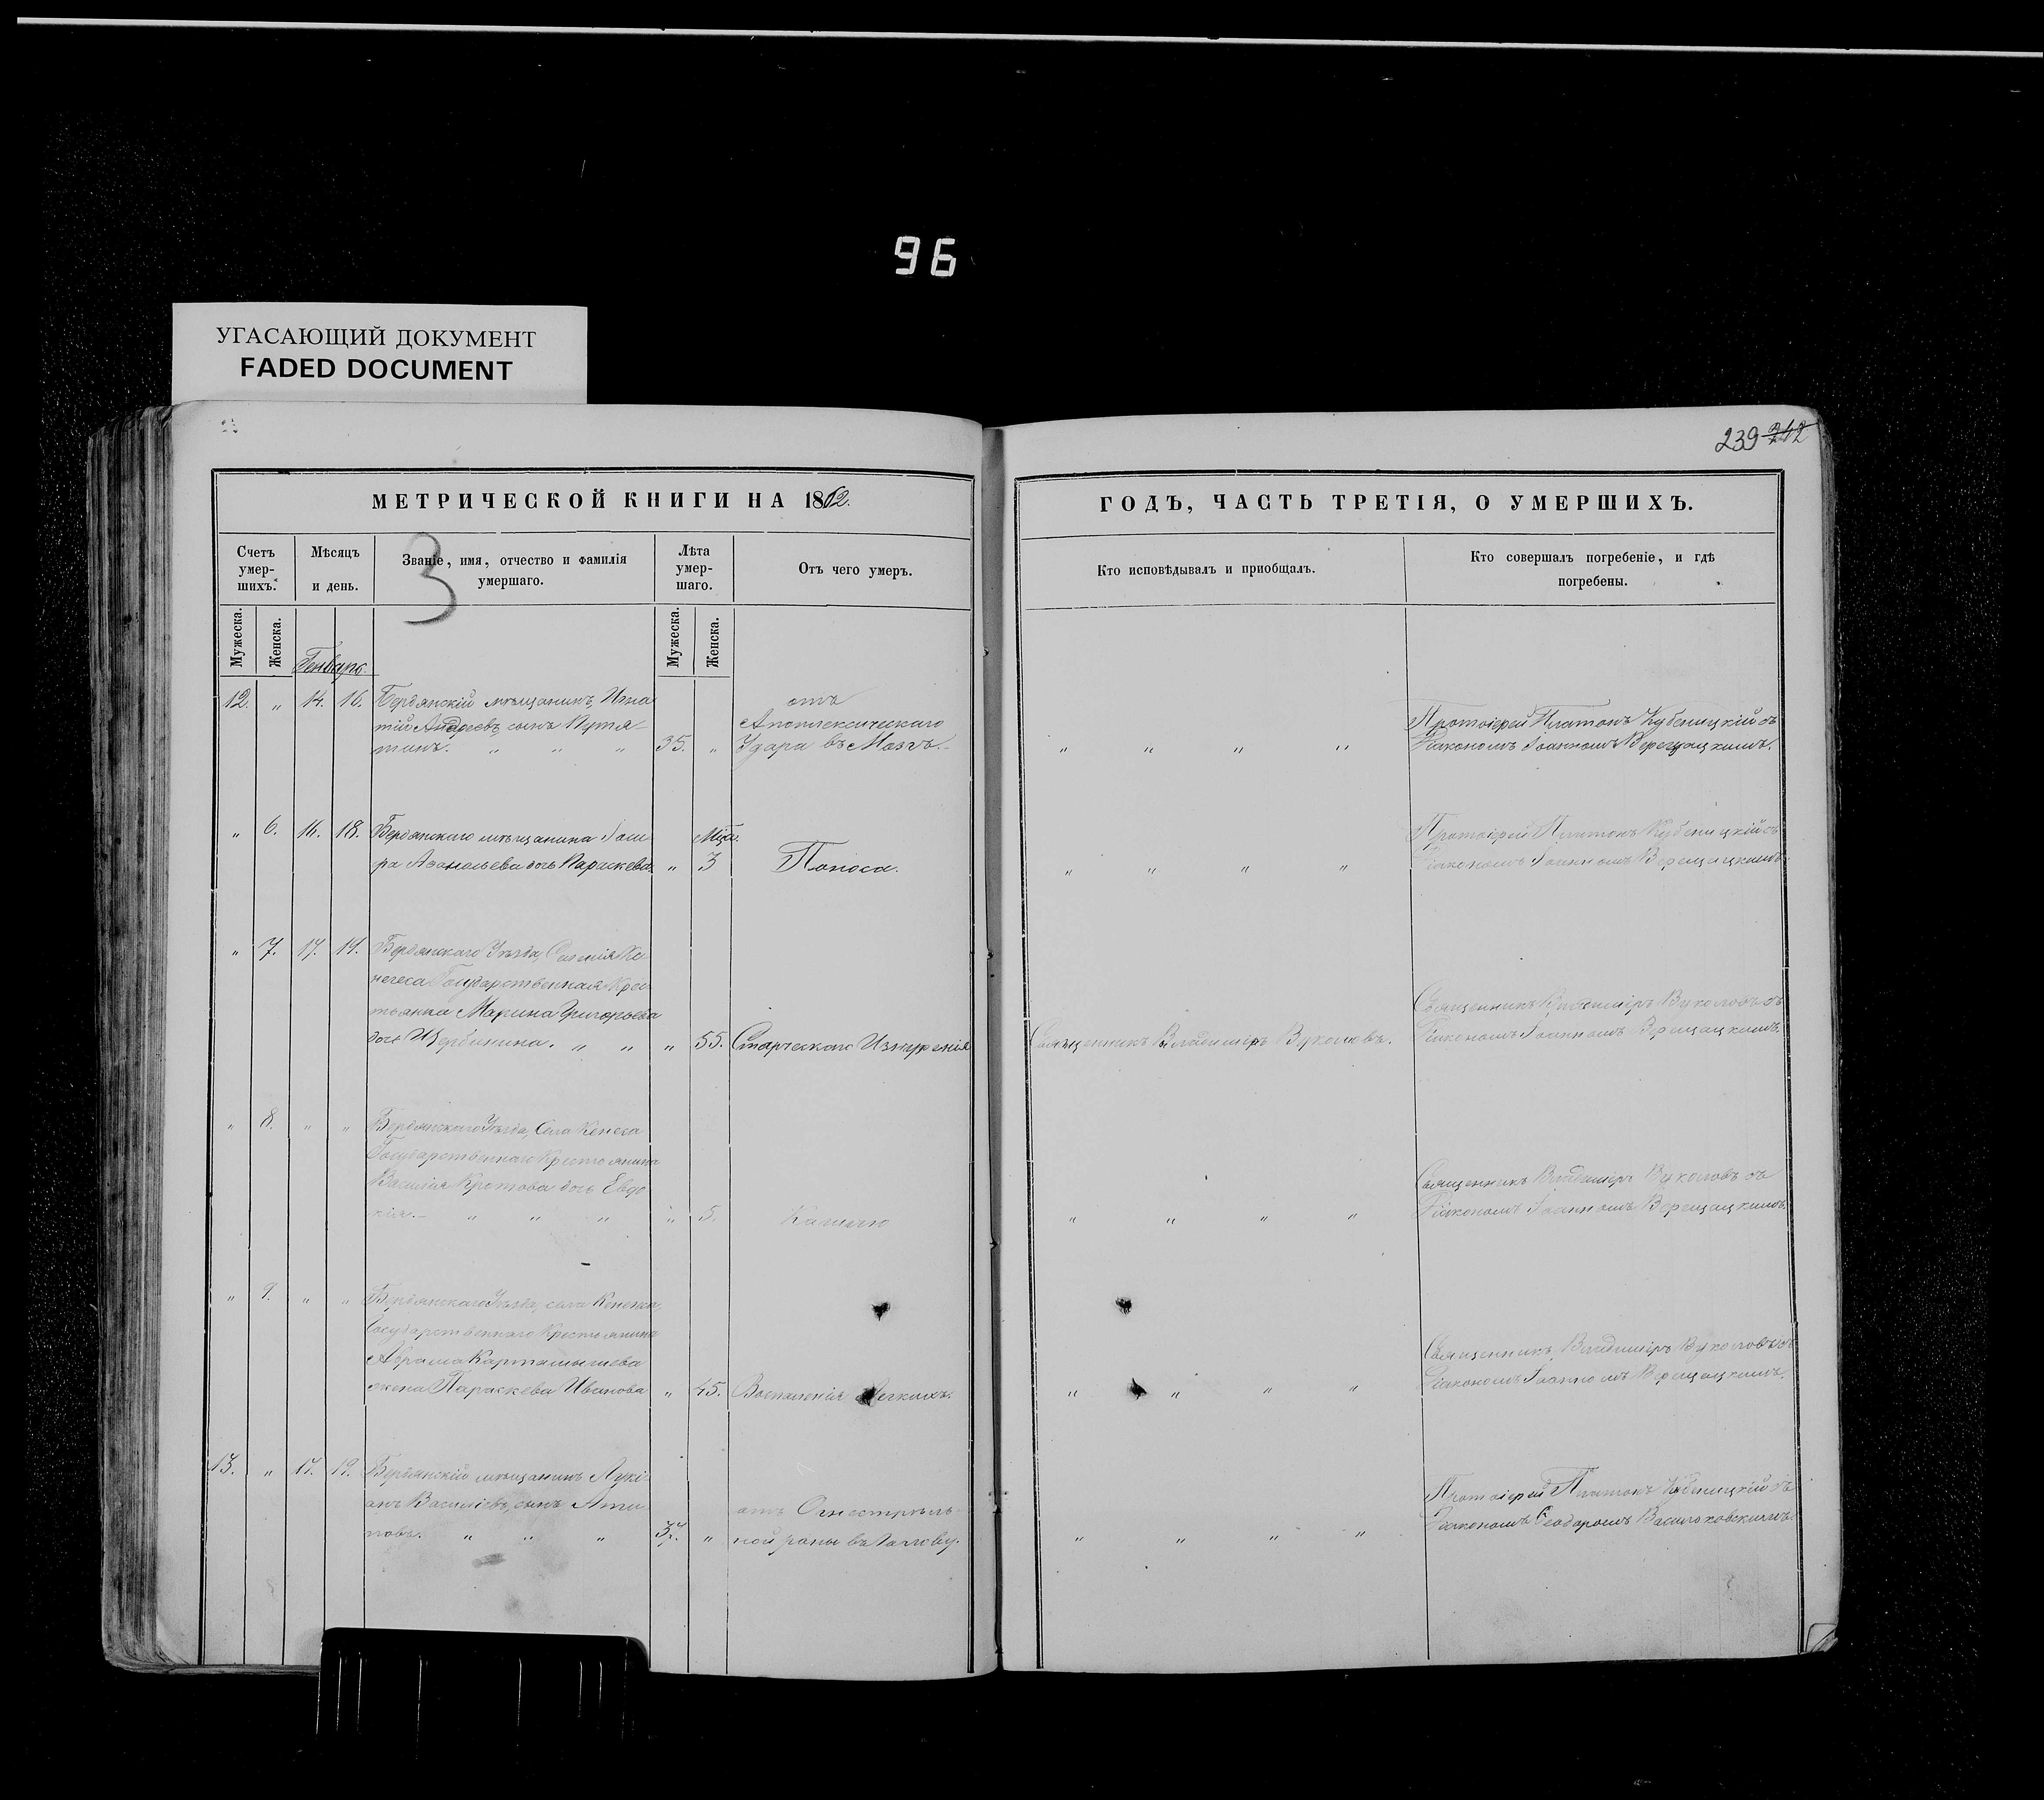 96
УГАСАЮЩИЙ ДОКУМЕНТ
FADED DOCUMENT
239 242
МЕТРИЧЕСКОЙ КНИГИ НА 1862.
ГОДЪ, ЧАСТЬ ТРЕТІЯ, О УМЕРШИХЪ.
3
Счетъ умер-шихъ.
Мѣсяцъ и день.
Званіе, имя, отчество и фамилія умершаго.
Лѣта умер-шаго.
Отъ чего умеръ.
Кто исповѣдывалъ и пріобщалъ.
Кто совершалъ погребеніе, и гдѣ погребены.
Мужеска.
Женска.
Мужеска.
Женска.
Генварь
12. " 14. 16. Бердянскій мѣщанинъ, Игна
тій Андреевъ, сынъ Путя-
тинъ. " " " 35. "
отъ
Апоплексическаго
Удара въ Мозгъ.
" " " "
Протоіерей Платонъ Кубеницкій съ
Діакономъ Іоанномъ Верещацкимъ.
" 6. 16. 18. Бердянскаго мѣщанина
Аѳанасьева дочь Параскева. " Мца. 3
Поноса.
" " " "
Протоіерей Платонъ Кубеницкій съ
Діакономъ Іоанномъ Верещацкимъ.
" 7. 17. 19. Бердянскаго Уѣзда, Селенія Ке-
негеса Государственная Крес-
тьянка Марина Григорьева
дочь Щербинина. " " " 55.
Старческаго Изнуренія
Священникъ Владиміръ Вуколовъ.
Священникъ Владиміръ Вуколовъ съ
Діакономъ Іоанномъ Верещацкимъ.
" 8. " " Бердянскаго Уѣзда, Села Кенегеса
Государственнаго Крестьянина
Василія Кротова дочь Евдо
кія. " " " " 5.
Кашлю
" " " "
Священникъ Владиміръ Вуколовъ съ
Діакономъ Іоанномъ Верещацкимъ.
" 9. " " Бердянскаго Уѣзда, села Кенегеса
Государственнаго Крестьянина
Абрама Картамышева
жена Параскева Иванова " 45.
Воспаленія Легкихъ.
" " " "
Священникъ Владиміръ Вуколовъ съ
Діакономъ Іоанномъ Верещацкимъ.
13. " 17. 19. Бердянскій мѣщанинъ Лукі-
анъ Васильевъ, сынъ
новъ. " " " 37. "
отъ Огнестрѣль-
ной раны въ Голову.
" " " "
Протоіерей Платонъ Кубеницкій съ
Діакономъ Ѳеодоромъ Васильковскимъ.